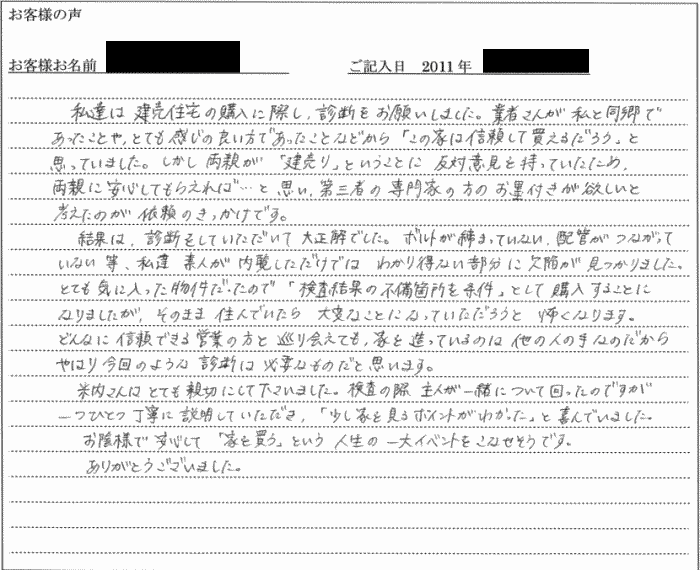 お客様の声
お客様お名前
ご記入日 2011年
私達は 建売住宅の購入に際し、診断をお願いしました。業者さんが 私と同郷で
あったことや、とても感じの良い方であったことなどから「この家は信頼して買えるだろう」と
思っていました。しかし 両親が 「建売り」ということに 反対意見を持っていたため、
両親に安心してもらえれば…と 思い、第三者の専門家の方のお墨付きが欲しいと
考えたのが 依頼のきっかけです。
結果は、診断をしていただいて 大正解でした。ボルトが締まっていない、配管が つながって
いない 等、私達 素人が 内覧しただけでは わかり得ない部分に 欠陥が 見つかりました。
とても気に入った物件だったので 「検査結果の不備箇所を条件」として 購入することに
なりましたが、そのまま 住んでいたら 大変なことに なっていただろうと 怖くなります。
どんなに 信頼できる営業の方と 巡り会えても、家を造っているのは 他の人の手なのだから
やはり 今回のような 診断は 必要なものだと思います。
米内さんは とても親切にして下さいました。検査の際、主人が一緒について回ったのですが
一つひとつ丁寧に説明していただき、「少し家を見るポイントがわかった」と 喜んでいました。
お陰様で 安心して 「家を買う」という 人生の 一大イベントを こなせそうです。
ありがとうございました。